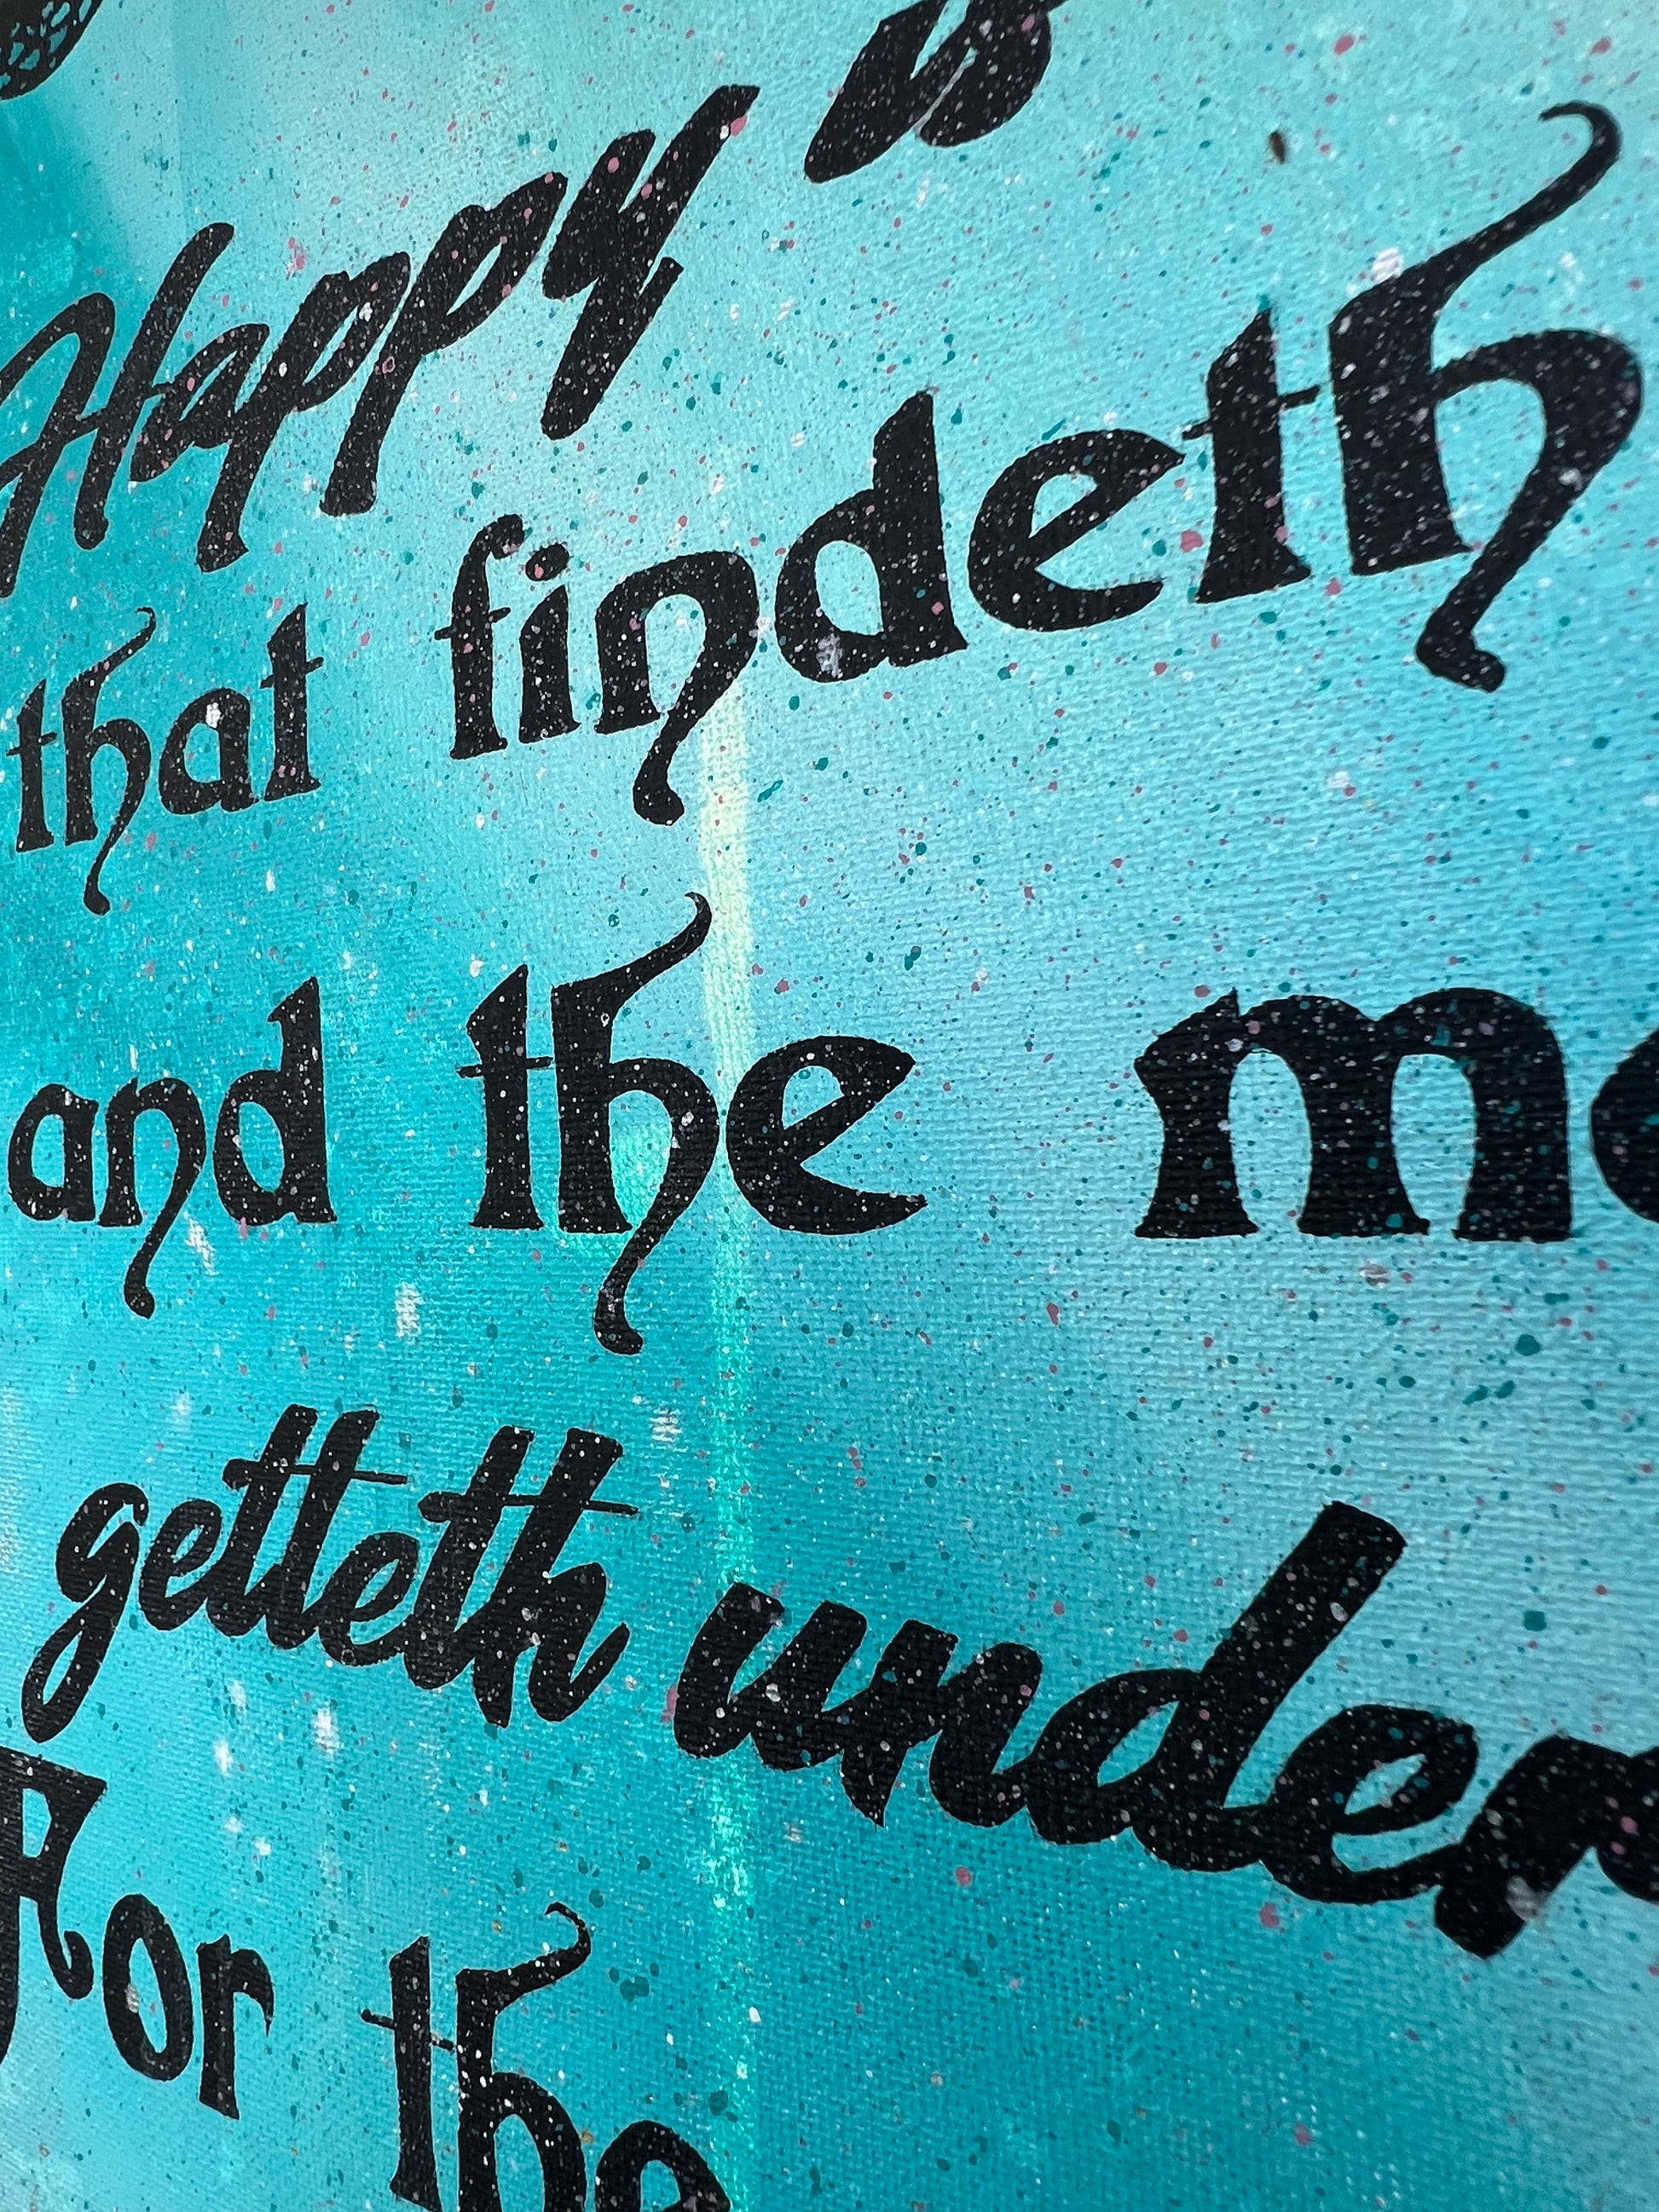 Happy is
that findeth
and the m
getteth under
For the